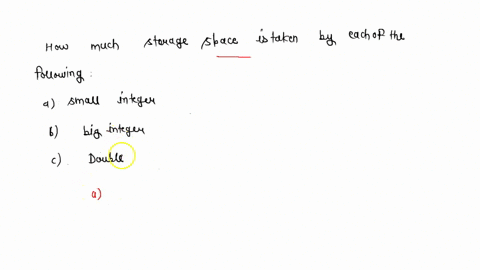 How much storage space is taken by each of the
following :
a) small integer
b) big integer
c) Double
a)